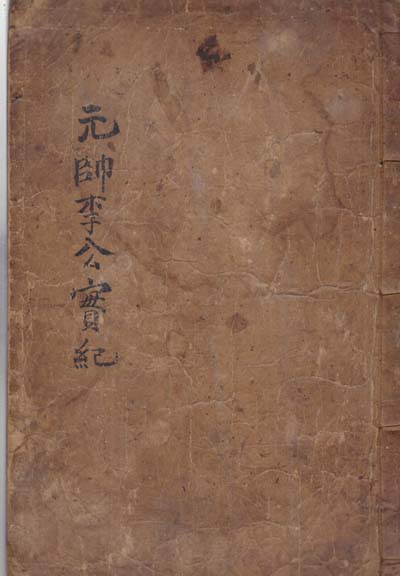 元帥李公實紀